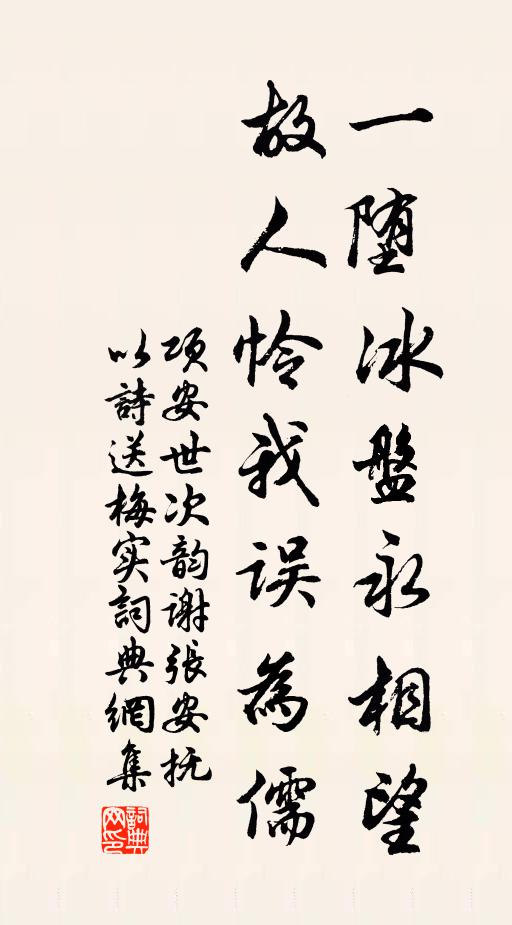 一堕冰盤永相望
故人怜我误為儒
项安世次韵谢張安抚
以詩送梅实詞典網集
詞典
网印